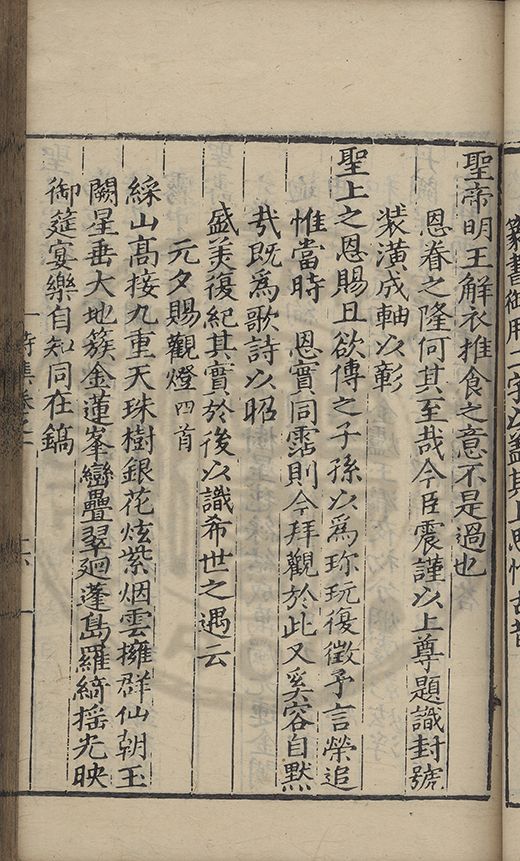 聖帝明王解衣推食之意不是過也
恩眷之隆何其至哉今臣震謹以上尊題識封號
裝潢成軸以彰
聖上之恩賜且欲傳之子孫以為珎玩復徵予言榮追
惟當時　恩實同霑則今拜觀於此又奚容自默
哉既為歌詩以昭
盛美復紀其實於後以識希世之遇云
元夕賜觀燈四首
綵山高接九重天珠樹銀花炫紫烟雲擁群仙朝玉
闕星垂大地簇金蓮峯巒疊翠廻蓬島羅綺揺光映
御筵宴樂自知同在鎬
詩集卷之